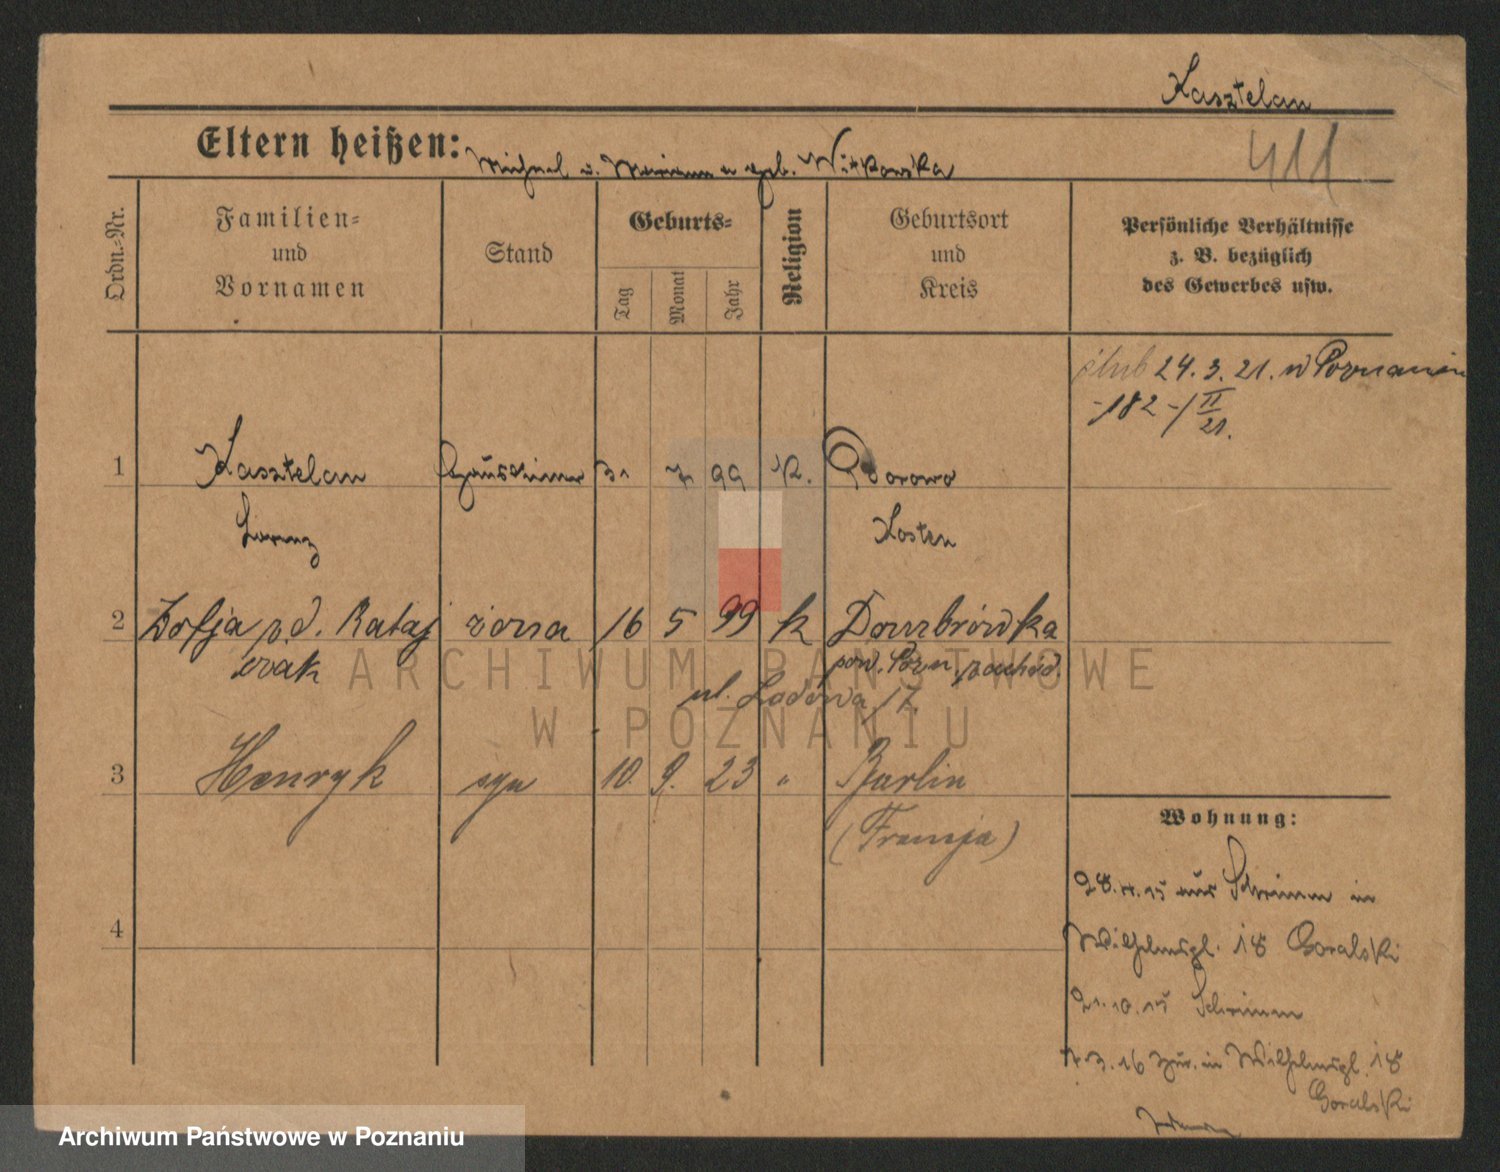 Kasztelan
Eltern heißen: Michael u. Marianna geb. Witkowska
411
Ordn.-Nr.
Familien-
und
Vornamen
Stand
Geburts-
Tag
Monat
Jahr
Religion
Geburtsort
und
Kreis
Persönliche Verhältnisse
z. B. bezüglich
des Gewerbes usw.
ślub 24. 3. 21. w Poznaniu
-182-/II
21.
1 Kasztelan Hausdiener 31 7 99 K. Borowo
Lorenz Kosten
2 Zofja z d. Rataj żona 16 5 99 k Dombrówka
czak pow. Pozn. zachód.
ul. Lodowa 17.
3 Henryk syn 10. 9. 23 " Barlin
(Francja)
4
Wohnung:
28.4.15 aus Schrimm in
Wilhelmspl. 18 Goralski
21.10.15 Schrimm
7.3.16 zur. in Wilhelmspl. 18
Goralski
ARCHIWUM PAŃSTWOWE
W POZNANIU
Archiwum Państwowe w Poznaniu